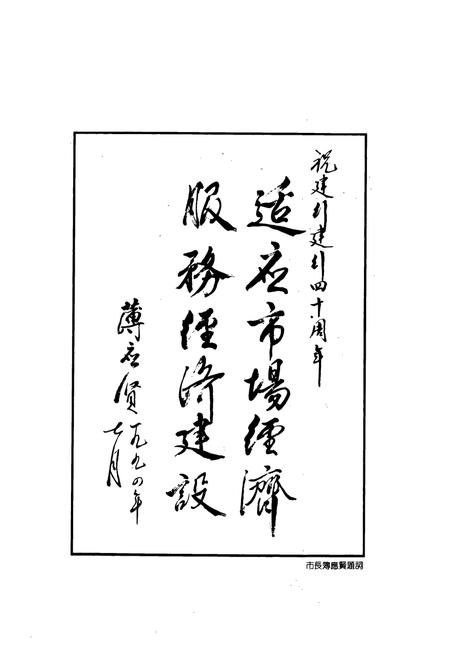 祝建行建行四十周年
适应市場經濟
服務經济建設
薄应贤一九九四年
七月
市長薄應賢題詞